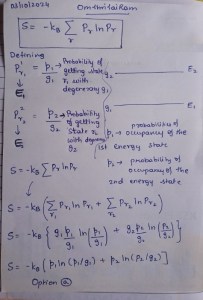 02/10/2024 OmSriSaiRam
S = -k_B Σ_r P_r ln P_r
Defining
P'_{r_1} = p_1/g_1 → Probability of getting state r_1 with degeneracy g_1
E_1
g_2 E_2
g_1 E_1
P_{r_2}^2 = p_2/g_2 → Probability of getting state r_2 with degeneracy g_2
E_2
p_1 → probabilities of occupancy of the 1st energy state
p_2 → probability of occupancy of the 2nd energy state
S = -k_B Σ P_r ln P_r
S = -k_B (Σ_{r_1} P_r ln P_r + Σ_{r_2} P_r ln P_r)
S = -k_B { g_1 p_1/g_1 ln(p_1/g_1) + g_2 p_2/g_2 ln(p_2/g_2) }
S = -k_B [p_1 ln(p_1/g_1) + p_2 ln(p_2/g_2)]
Option a